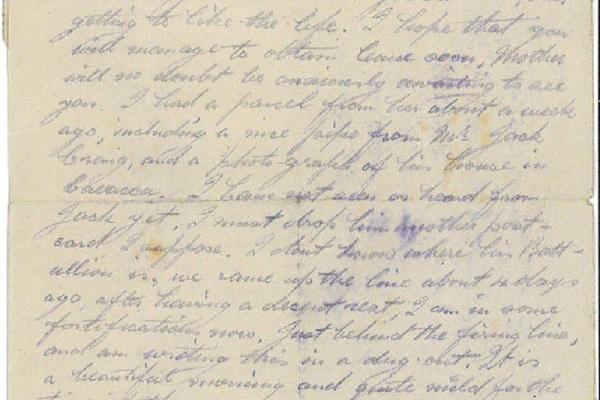 getting to like the life. I hope that you
will manage to obtain leave soon, Mother
will no doubt be anxiously awaiting to see
you. I had a parcel from her about a week
ago, including a nice pipe from Mr Jack
and a photograph of his house in
I have not seen or heard from
Jack yet, I must drop him another post-
card I suppose. I dont know where his Batt-
allion is, we came up the line about 4 days
ago, after having a decent rest, I am in some
fortifications now, just behind the firing line,
and am writing this in a dug-out. It is
a beautiful morning and quite mild for the